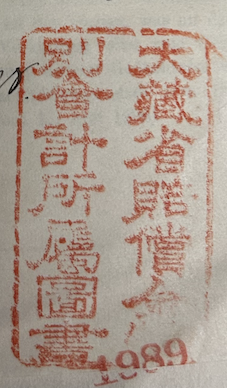 大藏省賠償
別會計所屬圖書
1989